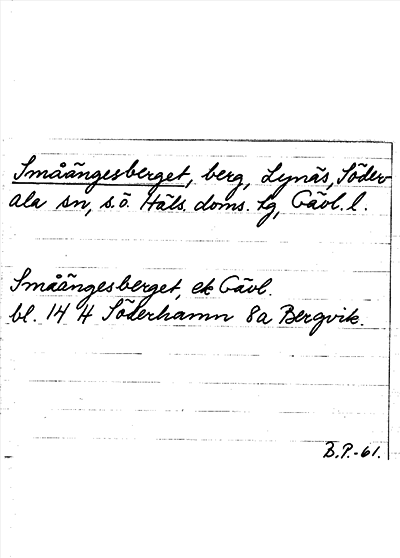 Småängesberget, berg, Lynäs, Söder-
ala sn, s.ö. Häls. doms. tg, Gävl. l.
Småängesberget, ek Gävl.
bl. 14 H Söderhamn 8a Bergvik.
B.P.-61.